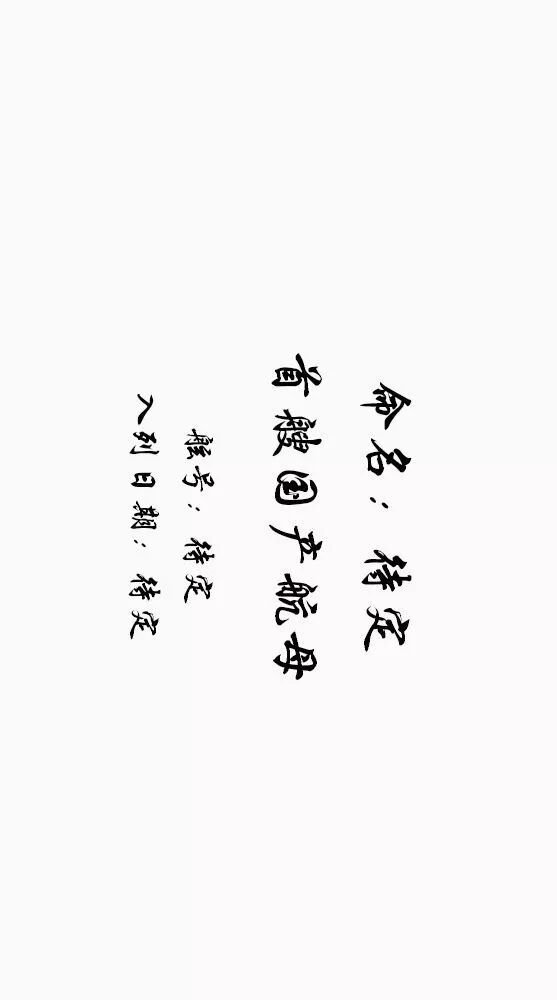 命名：待定
首艘国产航母
舷号：待定
入列日期：待定